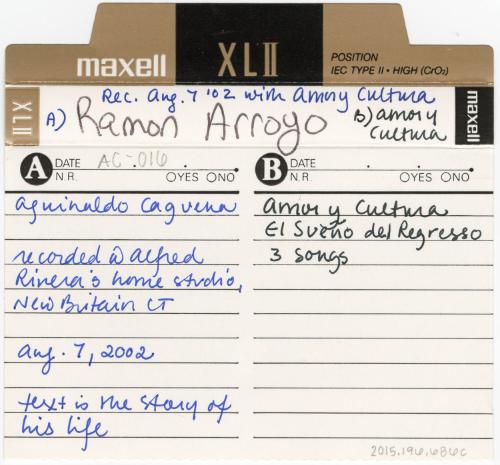 maxell XLII POSITION
IEC TYPE II • HIGH (CrO2)
XLII
Rec. Aug. 7 '02 with Amor y Cultura
A) Ramon Arroyo
B) amor y
Cultura
maxell
A DATE AC-016
N.R. OYES ONO
aguinaldo Caguena
recorded @ Alfred
Rivera's home studio,
New Britain CT
Aug. 7, 2002
text is the story of
his life
B DATE
N.R. OYES ONO
Amor y Cultura
El Sueño del Regresso
3 songs
2015.196.686c